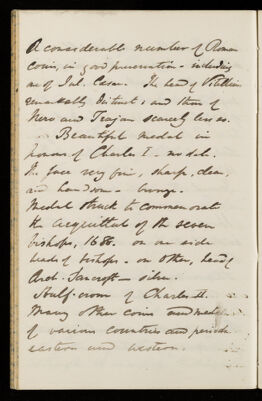 A considerable number of Roman
Coins, in good preservation - including
one of Jul. Cæsar. The head of Vitellius
remarkably distinct, and those of
Nero and Trajan scarcely less so.
Beautiful medal in
honour of Charles I - no date.
The face very fine, sharp, clear,
and handsome - bronze.
Medal struck to commemorate
the acquittal of the seven
bishops, 1688. on one side
heads of bishops - on other, head of
Arch. Sancroft - silver.
Half-crown of Charles II.
Many other coins and medals
of various countries and periods
eastern and western.